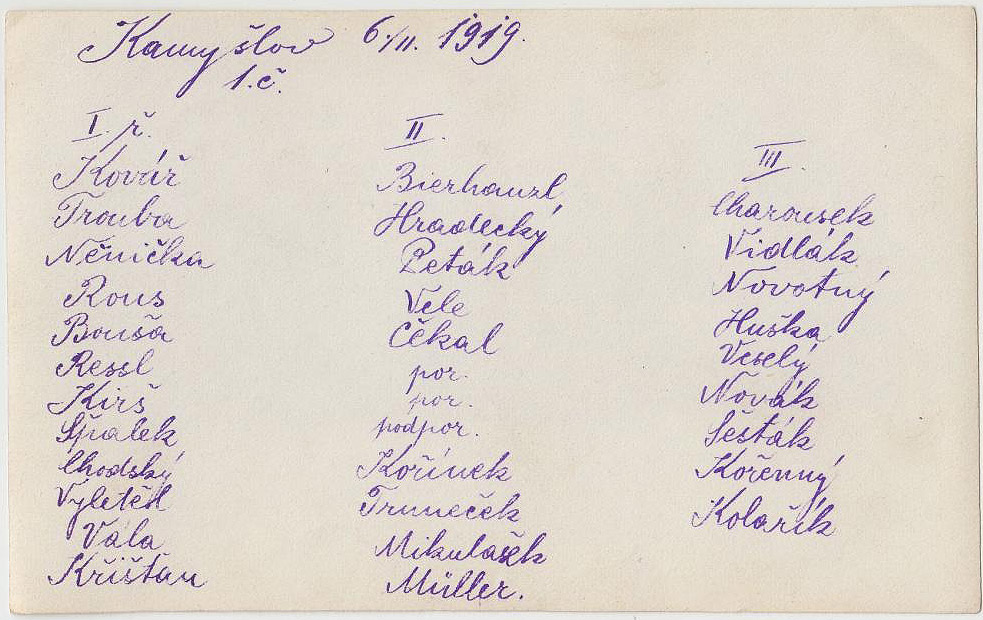 Kamyšlov 6./II. 1919.
1.č.
I. ř.
Kovář
Trouba
Něnička
Rous
Bouša
Ressl
Kirš
Špalek
Chodský
Vyletěl
Vála
Křišťan
II.
Bierhanzl
Hradecký
Peták
Vele
Čékal
por.
por.
podpor.
Kořínek
Truneček
Mikulašek
Müller.
III.
Charousek
Vidlák
Novotný
Huška
Veselý
Novák
Šesták
Kořenný
Kolařík